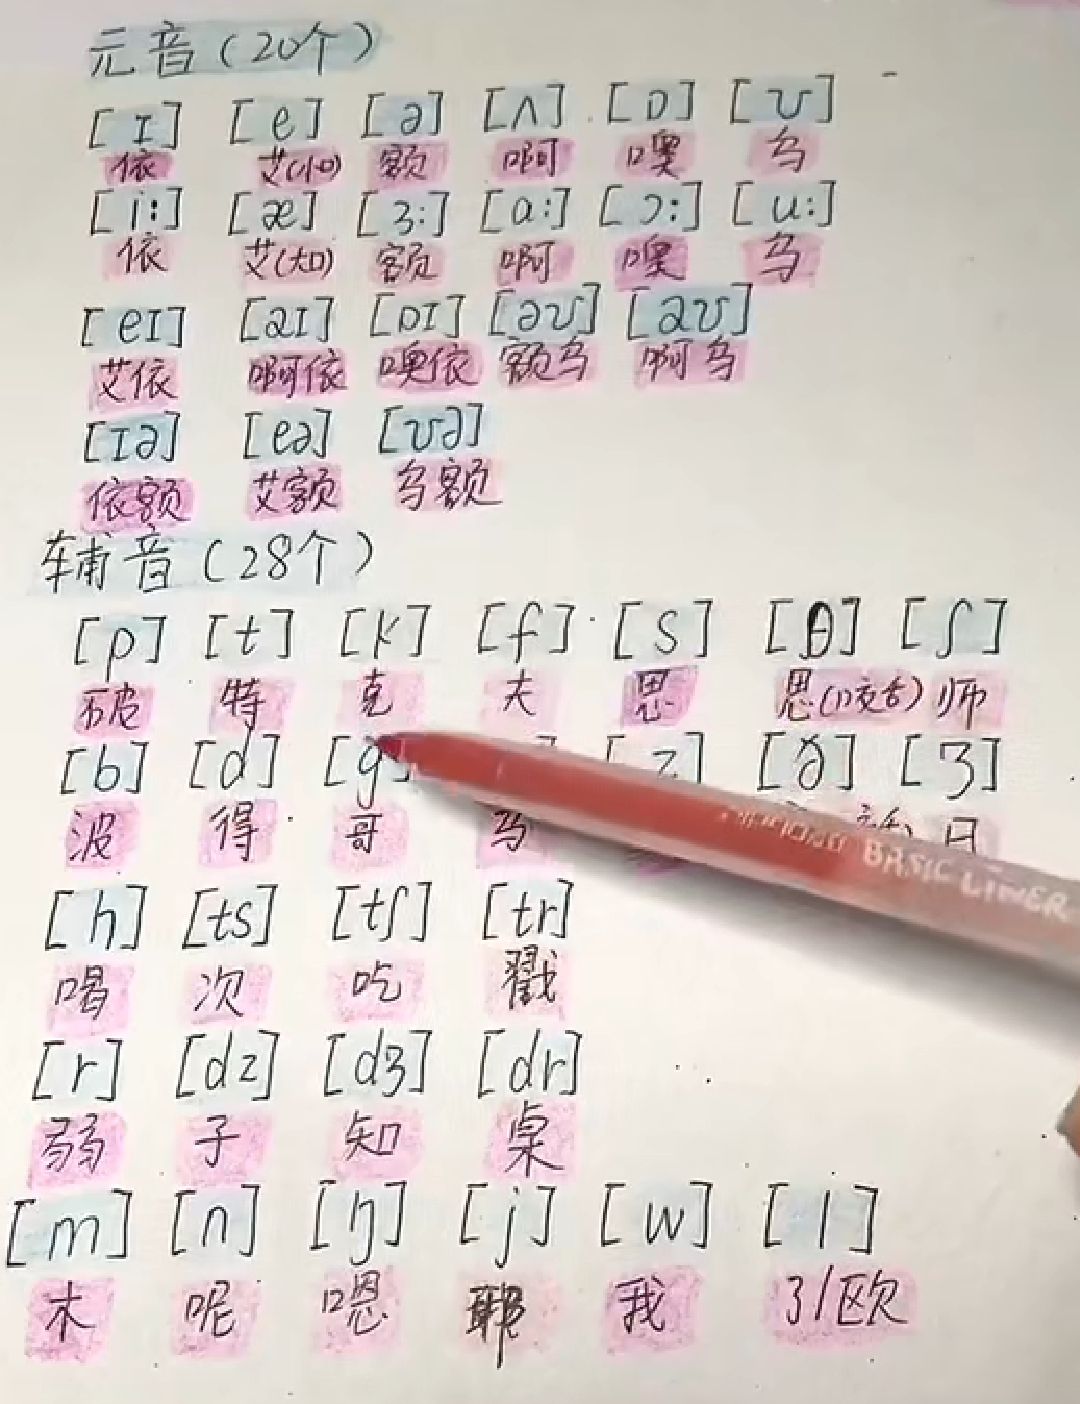 元音(20个)
[ɪ] [e] [ə] [ʌ] [ɒ] [ʊ]
依 艾(小口) 额 啊 噢 乌
[i:] [æ] [ɜ:] [ɑ:] [ɔ:] [u:]
依 艾(大口) 额 啊 噢 乌
[eɪ] [aɪ] [ɒɪ] [əʊ] [aʊ]
艾依 啊依 噢依 额乌 啊乌
[ɪə] [eə] [ʊə]
依额 艾额 乌额
辅音(28个)
[p] [t] [k] [f] [s] [θ] [ʃ]
破 特 克 夫 思 思(咬舌) 师
[b] [d] [g] [z] [ð] [ʒ]
波 得 哥 日
[h] [ts] [tʃ] [tr]
喝 次 吃 戳
[r] [dz] [dʒ] [dr]
弱 子 知 桌
[m] [n] [ŋ] [j] [w] [l]
木 呢 嗯 耶 我 了/欧
BASIC LINER